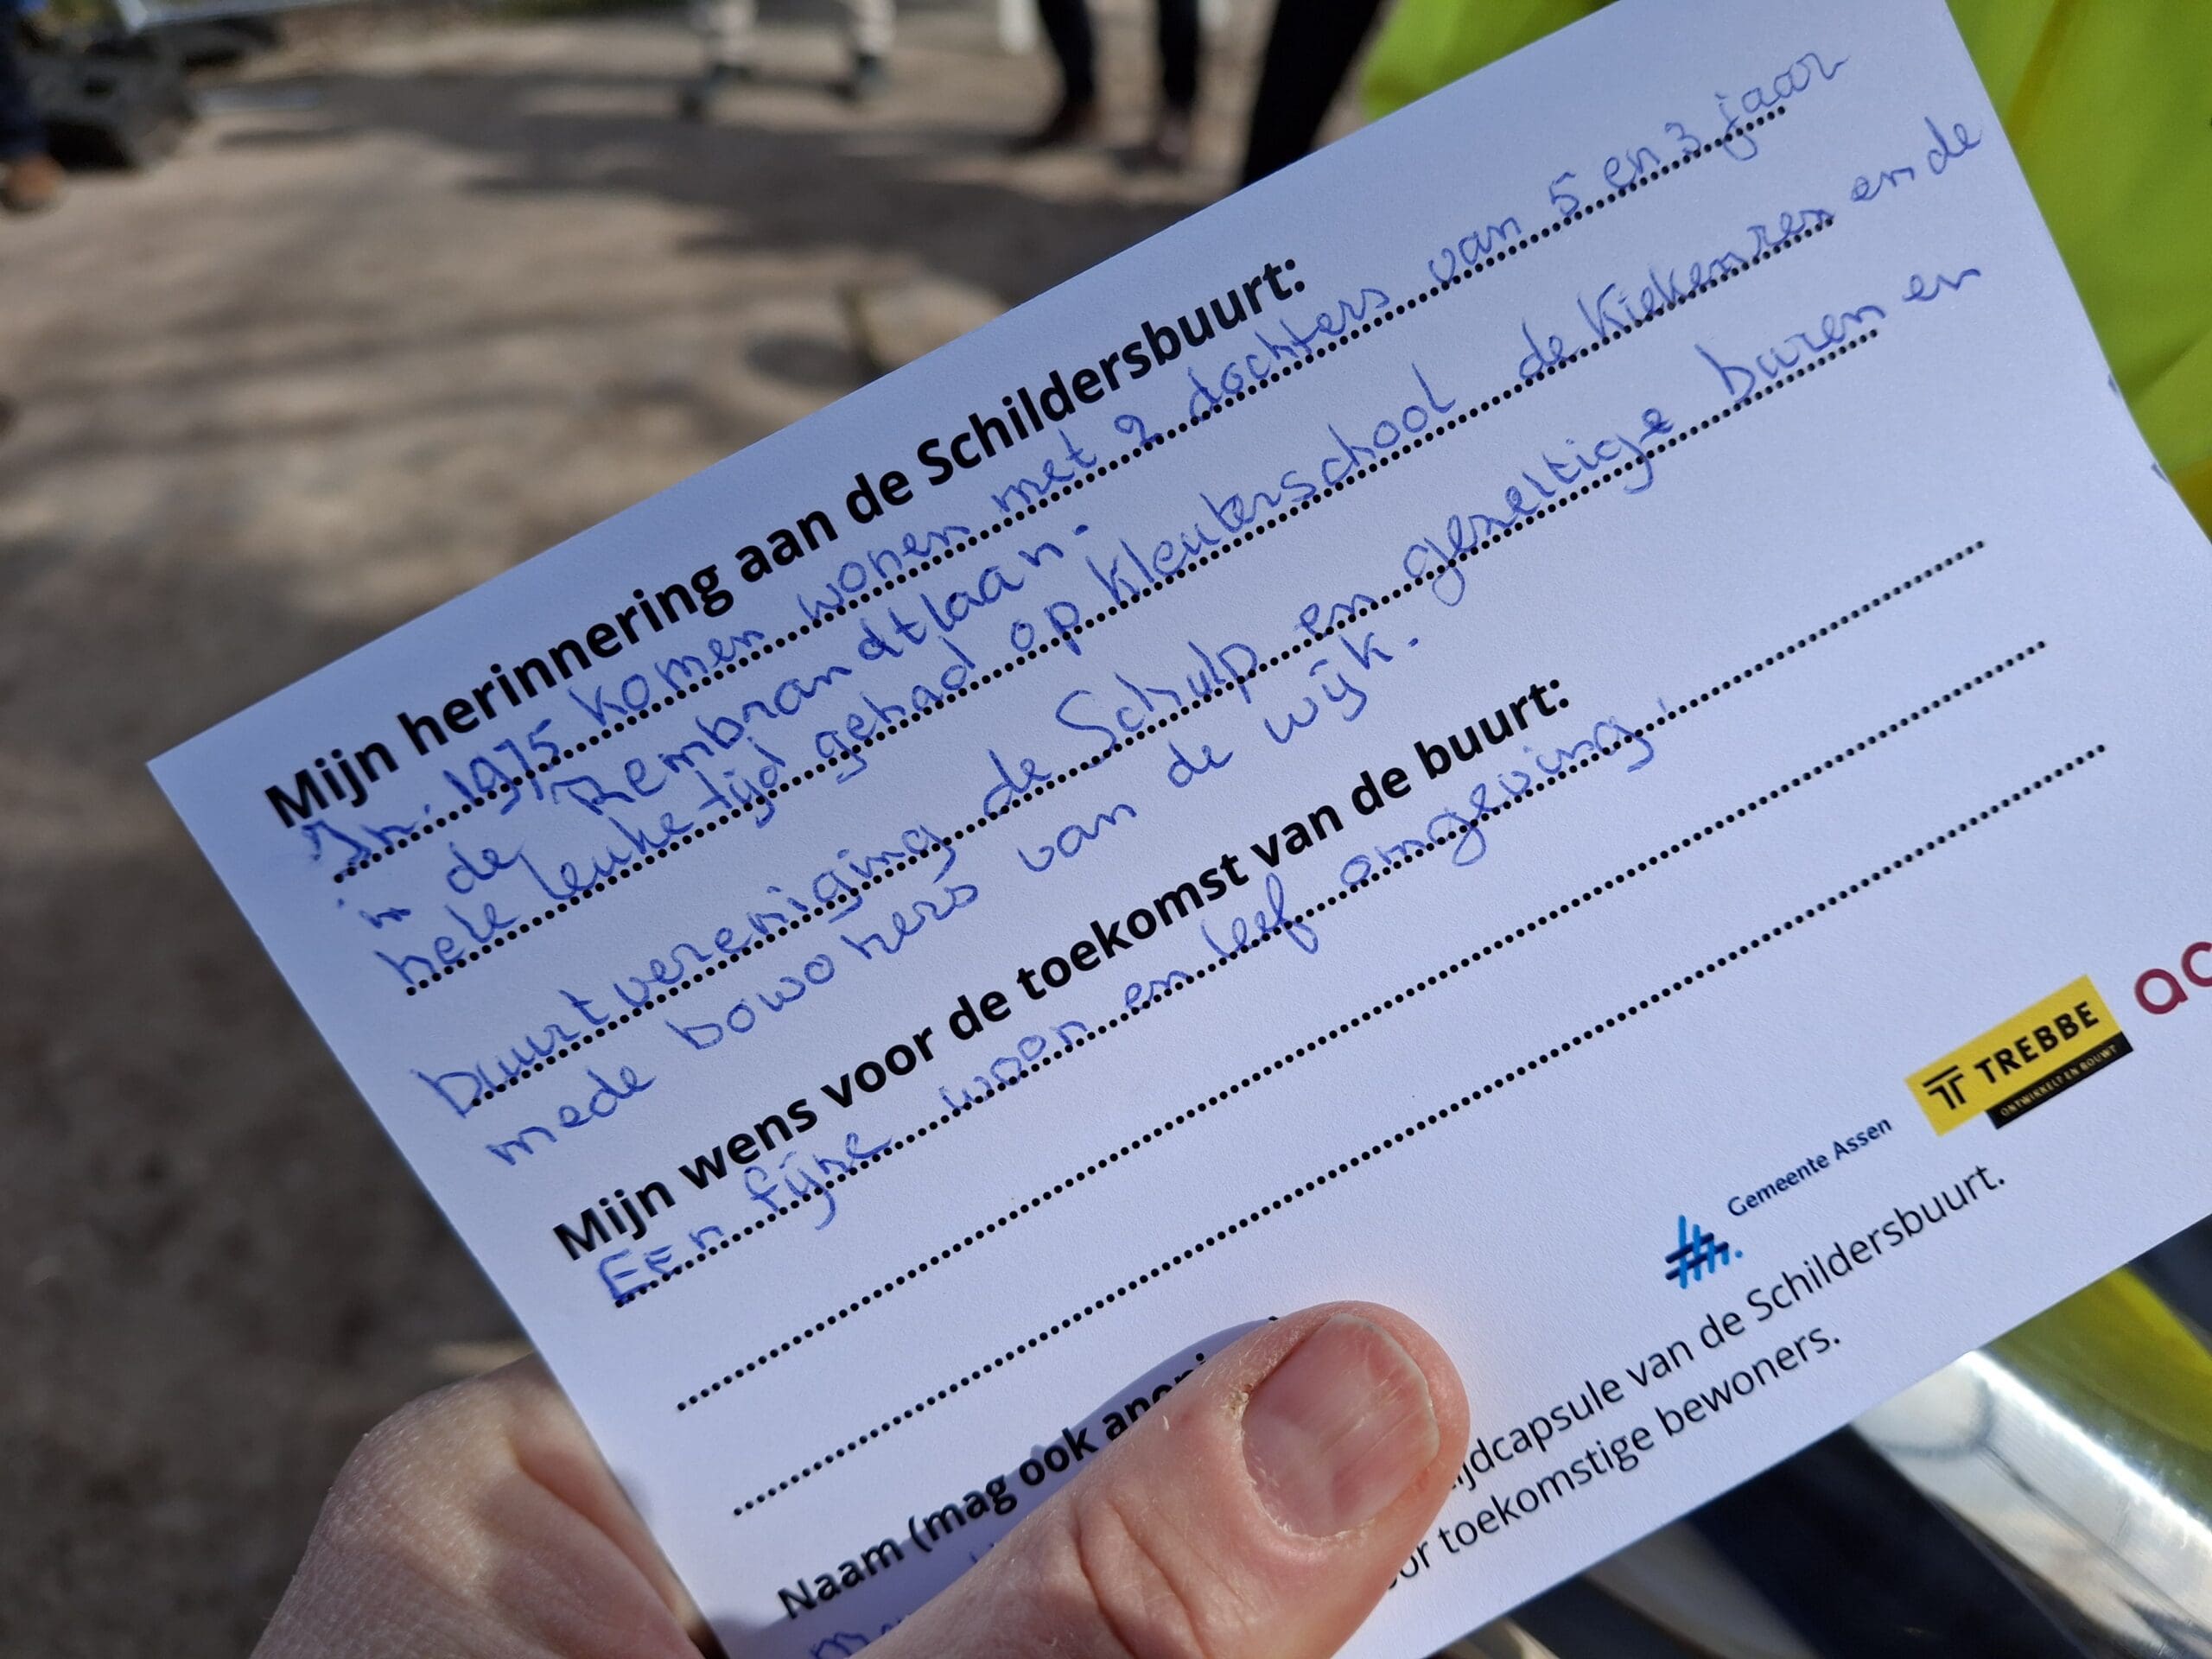 Mijn herinnering aan de Schildersbuurt:
In 1975 komen wonen met 2 dochters van 5 en 3 jaar
in de Rembrandtlaan.
hele leuke tijd gehad op kleuterschool de Kiekenren en de
buurtvereniging de Schulp en gezellige buren en
mede bowoners van de wijk.
Mijn wens voor de toekomst van de buurt:
EEn fijne woon en leef omgeving.
Naam (mag ook
Gemeente Assen
TREBBE
ONTWIKKELT EN BOUWT
van de Schildersbuurt.
toekomstige bewoners.